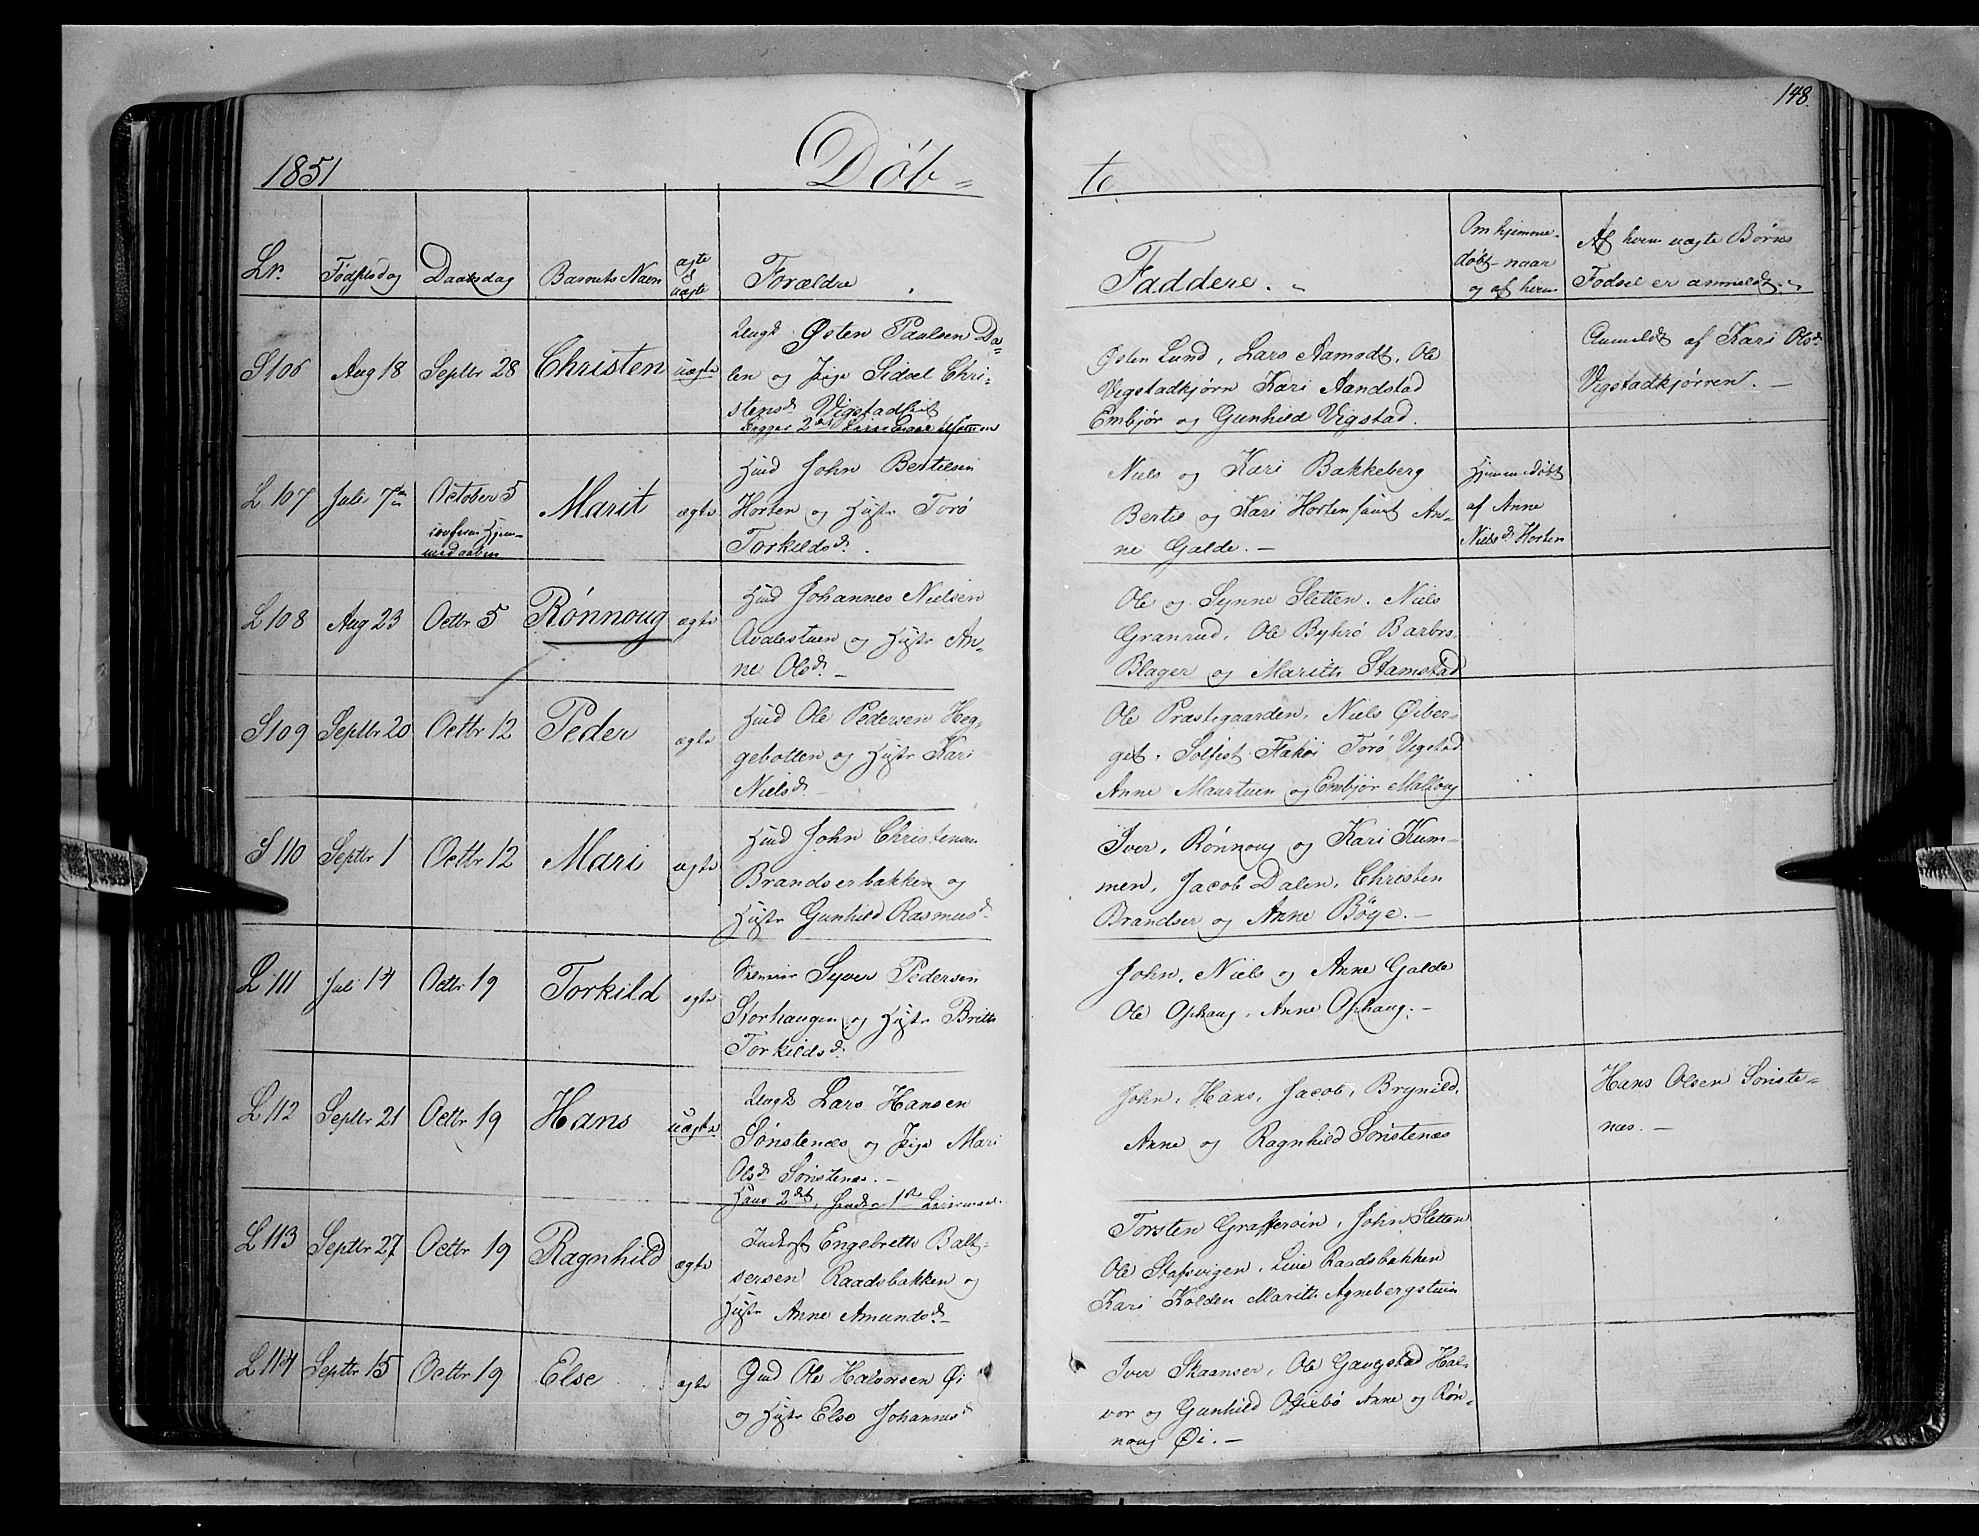 148.
1851 Døb= te
Lr. Fødselsdag Daabsdag Barnets Navn ægte el uægte Forældre Faddere. Om hjemme-døbt naar og af hvem Af hvem uægte Børns Fødsel er anmeldt.
S 106 Aug 18 Septbr 28 Christen uægte
Ungk Østen Paulsen Da=
len og Pige Sidsel Chri=
stensd Vigstad
Østen Lund, Lars Aamodt, Ole
Vigstadkjørn Kari Aandstad
Embjør og Gunhild Vigstad.
Anmeldt af Kari Olsd
Vigstadkjørren. —
L 107 Juli 7de October 5 Marit ægte
Huusd John Bertelsen
Horten og Hustr Torø
Torkildsd.
Niels og Kari Bakkeberg
Bertil og Kari Horten samt An=
ne Galde. —
Hjemmedøbt
af Anne
Nielsd Horten
L 108 Aug 23 Octbr 5 Rønnoug ægte
Huusd Johannes Nielsen
Avalestuen og Hustr An=
ne Olsd. —
Ole og Synne Sletten. Niels
Granrud, Ole Byhrø Barbro
Blager og Marith Stamstad
S 109 Septbr 20 Octbr 12 Peder ægte
Huusd Ole Pedersen Heg=
gebotten og Hustr Kari
Nielsd. —
Ole Præstegaarden, Niels Øiber=
get. Solfist Flakøi Torø Vigstad
Anne Maurtuen og Embjør Malloug
S 110 Septbr 1 Octbr 12 Mari ægte
Huusd John Christensen
Brandserbakken og
Hustr Gunhild Rasmusd
Iver, Rønnoug og Kari Kum=
men, Jacob Dalen, Christen
Brandser og Anne Bøge. —
L 111 Juli 14 Octbr 19 Torkild ægte
Syver Pedersen
Storhaugen og Hustr Brith
Torkildsd.
John, Niels og Anne Galde
Ole Ophaug, Anne Ophaug. —
L 112 Septbr 21 Octbr 19 Hans uægte
Ungk Lars Hansen
Sønstenæs og Pige Mari
Olsd Sønstenæs. —
Hans 2det, hendes 1ste Leiermaal.
John, Hans, Jacob, Brynild,
Anne og Ragnhild Sønstenæs
Hans Olsen Sønste=
næs. —
L 113 Septbr 27 Octbr 19 Ragnhild ægte
Inderst Engebreth Balt=
sersen Raadsbakken og
Hustr Anne Amundsd. —
Torsten Grafferøin, John Sletten
Ole Stafsvigen, Live Raadsbakken
Kari Kolden Marith Agnebergstuen
L 114 Septbr 15 Octbr 19 Else ægte
Gmd Ole Halvorsen Øi
og Hustr Else Johannesd
Iver Skaanser, Ole Gaugstad Hal=
vor og Gunhild Offixbø Anne og Røn=
noug Øi. —